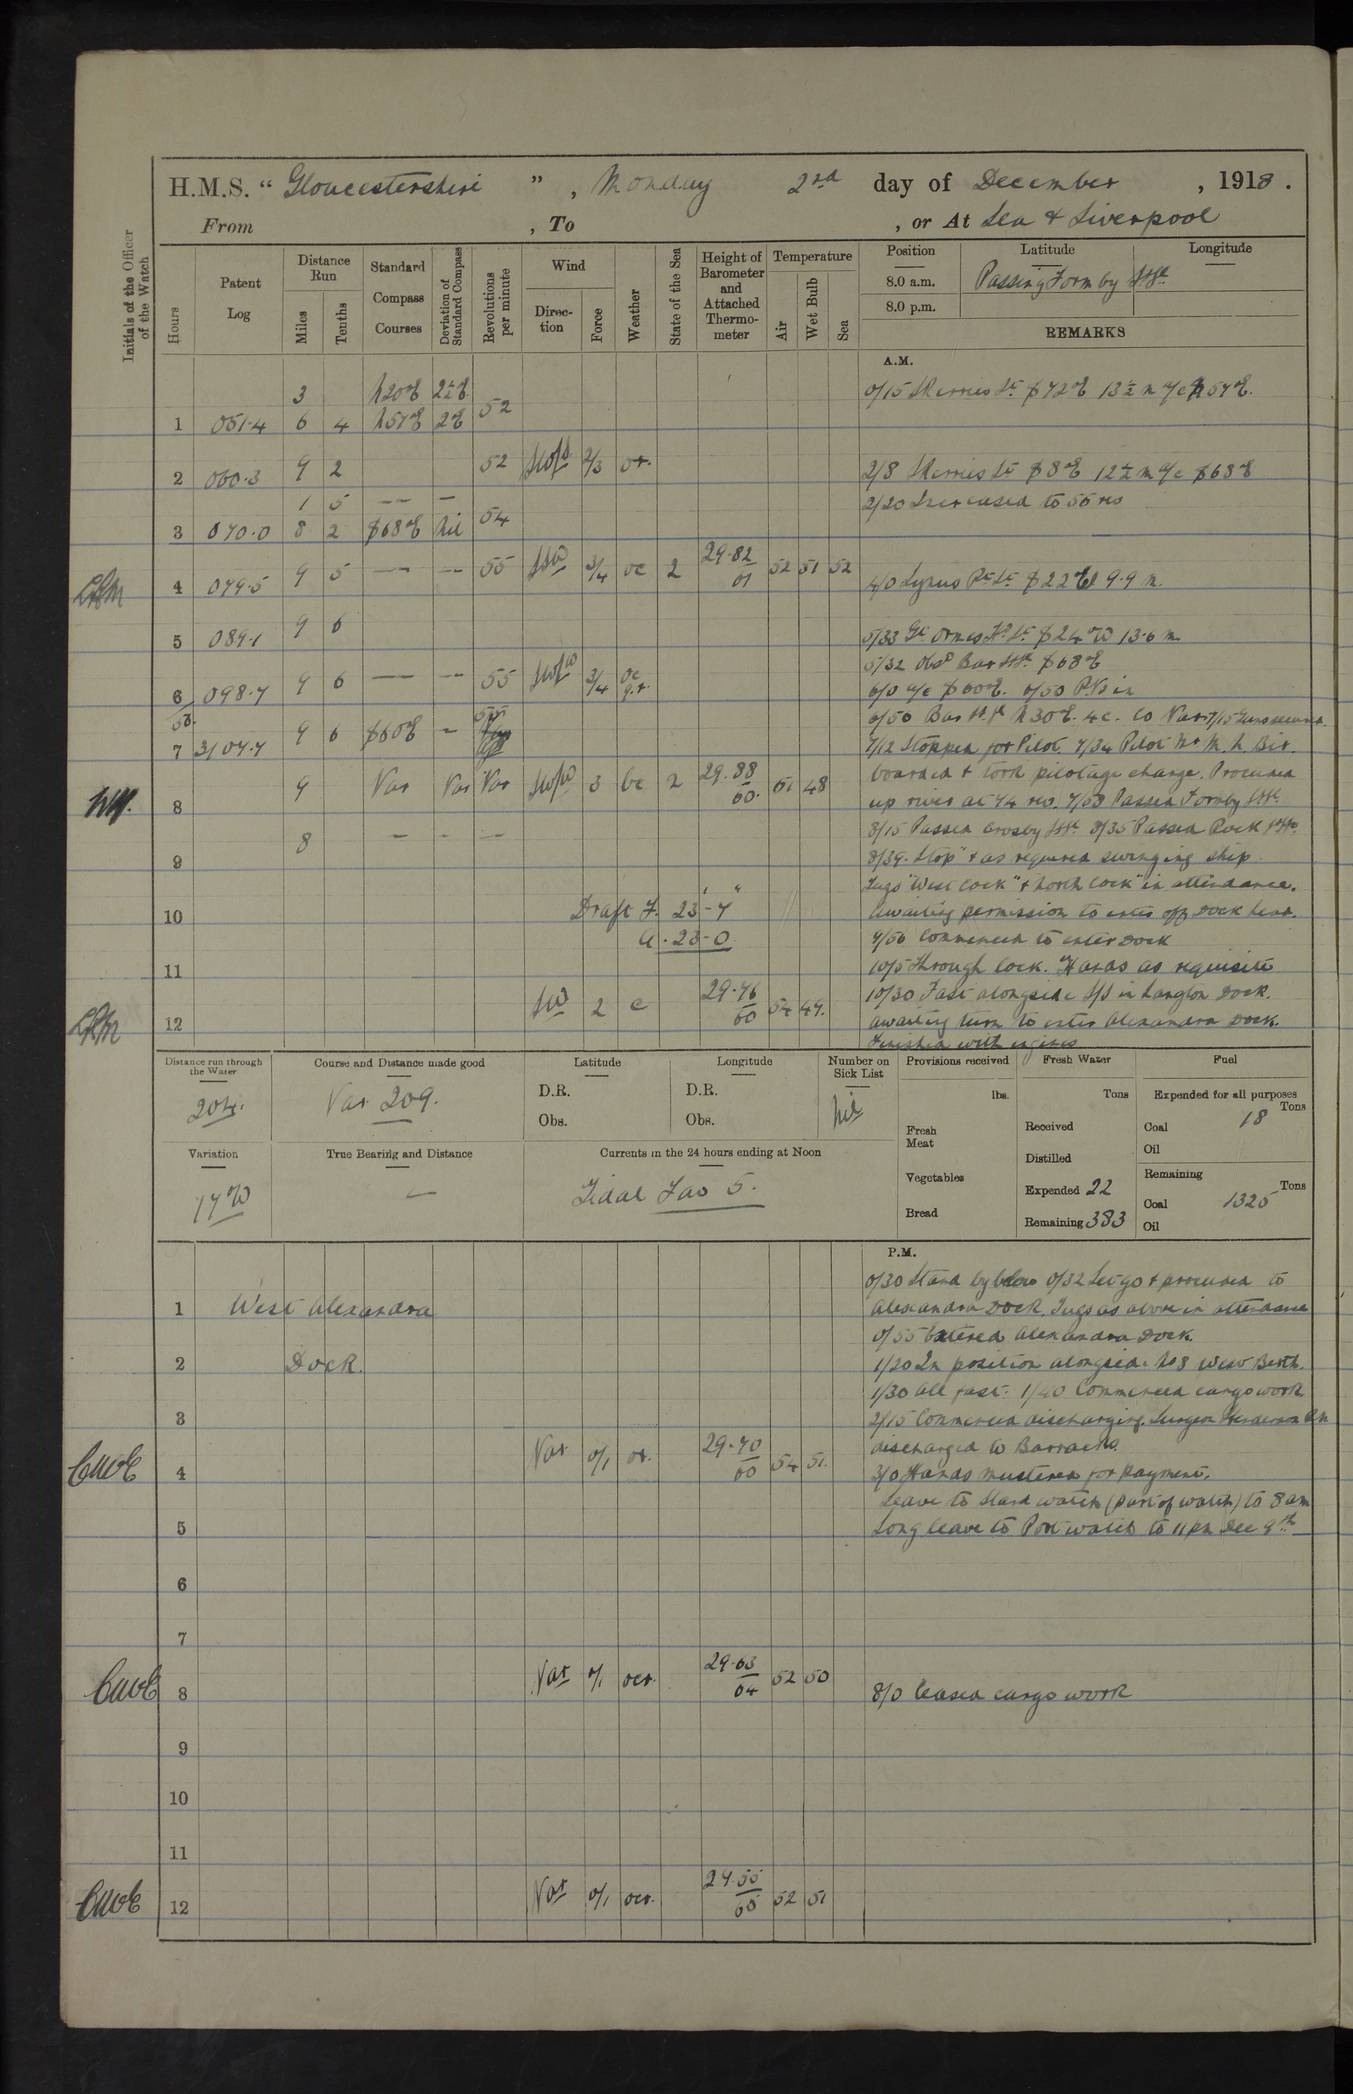 H.M.S. “ Gloucestershire ” , Monday 2nd day of December , 1918 .
From , To , or At Sea & Liverpool
Initials of the Officer of the Watch
Hours
Patent Log
Distance Run
Miles
Tenths
Standard Compass Courses
Deviation of Standard Compass
Revolutions per minute
Wind
Direction
Force
Weather
State of the Sea
Height of Barometer and Attached Thermometer
Temperature
Air
Wet Bulb
Sea
Position Latitude Longitude
8.0 a.m. Passing Formby
8.0 p.m.
REMARKS
A.M.
3 N20°E 52
0/15 Skerries Lt
1 051.4 6 4 N57°E 2°E
2 060.3 9 2 52 2/3 or.
2/8 Skerries Lt S8°E 12½ m a/c S68°E
1 5 — —
2/20 Increased to 55 rev
3 070.0 8 2 S68°E Nil 54
4 079.5 9 5 — — 55 SSW 3/4 oc 2 29.82 61 52 51 52
4/0 Lynus Pt Lt 9.9 m.
5 089.1 9 6
5/33 Gt Ormes Hd Lt S24°W 13.6 m
5/32 Obsd Bar S68°E
6 098.7 9 6 — — 55 3/4 oc q.r.
6/0 a/c S60°E. 6/50 P.Vs in
6/50 Bar N30°E. 4c. Co Var
7 3107.7 9 6 S60°E — 55
7/12 Stopped for Pilot 7/34 Pilot Mr
boarded & took pilotage charge. Proceeded
8 9 Var Var Var 3 bc 2 29.88 60. 51 48
up river at 44 rev. 7/58 Passed Formby
8/15 Passed Crosby 8/35 Passed Rock
9 8 — — —
8/39. Stop & as required swinging ship.
Tugs "West Cock" & North Cock" in attendance.
10 Draft F. 23'-7"
Awaiting permission to enter off Dock head.
A. 23-0
9/56 Commenced to enter Dock
11
10/5 Through lock. Hands as requisite
10/30 Fast alongside S/S in Langton Dock.
12 SW 2 c 29.76 60 54 49.
Awaiting turn to enter Alexandra Dock.
Finished with engines
Distance run through the Water
204.
Course and Distance made good
Var 209.
Latitude
D.R.
Obs.
Longitude
D.R.
Obs.
Number on Sick List
Nil
Variation
17°W
True Bearing and Distance
—
Currents in the 24 hours ending at Noon
Tidal Fav 5.
Provisions received
lbs.
Fresh Meat
Vegetables
Bread
Fresh Water
Tons
Received
Distilled
Expended 22
Remaining 383
Fuel
Expended for all purposes
Tons
Coal 18
Oil
Remaining
Tons
Coal 1325
Oil
P.M.
0/30 Stand by below 0/32 Let go & proceeded to
1 West Alexandra
Alexandra Dock Tugs as above in attendance
0/55 Entered Alexandra Dock.
2 Dock.
1/20 In position alongside No 3 West Berth.
1/30 All fast. 1/40 Commenced cargo work
3
2/15 Commenced discharging. Surgeon Henderson RN
discharged to Barracks.
4 Var 0/1 or. 29.70 60 54 51.
3/0 Hands mustered for payment.
Leave to Stard watch (part of watch) to 8 am
5
Long leave to Port watch to 11 pm Dec 9th
6
7
8 Var 0/1 ocr. 29.63 64 52 50
8/0 Ceased cargo work
9
10
11
12 Var 0/1 ocr. 29.55 65 52 51